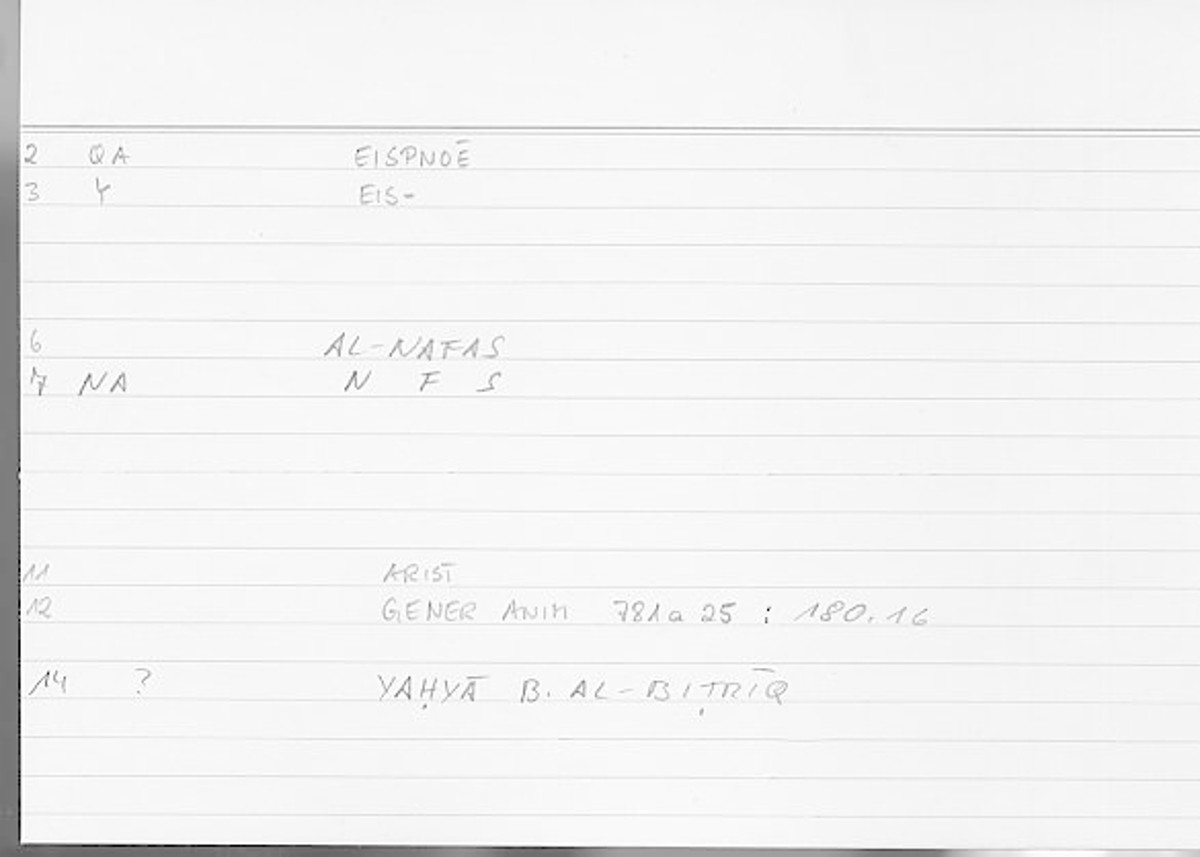 2 QA EISPNOĒ
3 Y EIS-
6 AL-NAFAS
7 NA N F S
11 ARIST
12 GENER ANIM 781a 25 : 180.16
14 ? YAḤYĀ B. AL-BIṬRĪQ